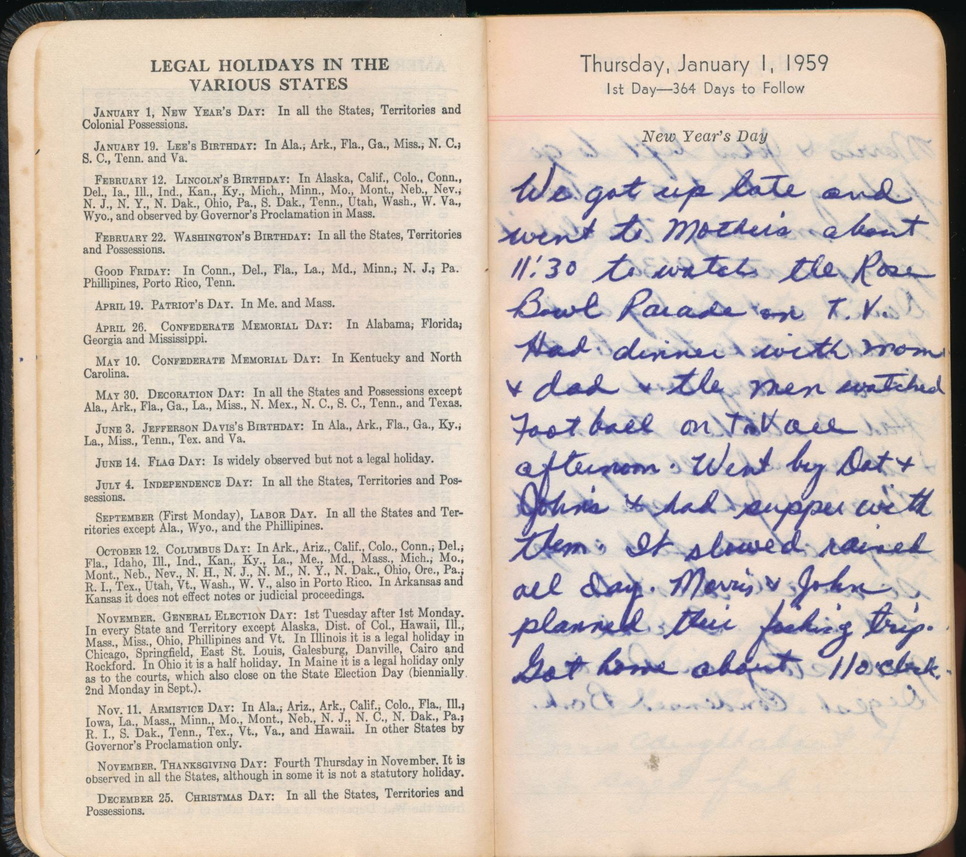 LEGAL HOLIDAYS IN THE
VARIOUS STATES
JANUARY 1, NEW YEAR'S DAY: In all the States, Territories and
Colonial Possessions.
JANUARY 19. LEE'S BIRTHDAY: In Ala.; Ark., Fla., Ga., Miss., N. C.;
S. C., Tenn. and Va.
FEBRUARY 12. LINCOLN'S BIRTHDAY: In Alaska, Calif., Colo., Conn.,
Del., Ia., Ill., Ind., Kan., Ky., Mich., Minn., Mo., Mont., Neb., Nev.,
N. J., N. Y., N. Dak., Ohio, Pa., S. Dak., Tenn., Utah, Wash., W. Va.,
Wyo., and observed by Governor's Proclamation in Mass.
FEBRUARY 22. WASHINGTON'S BIRTHDAY: In all the States, Territories
and Possessions.
GOOD FRIDAY: In Conn., Del., Fla., La., Md., Minn.; N. J.; Pa.
Phillipines, Porto Rico, Tenn.
APRIL 19. PATRIOT'S DAY. In Me. and Mass.
APRIL 26. CONFEDERATE MEMORIAL DAY: In Alabama; Florida;
Georgia and Mississippi.
MAY 10. CONFEDERATE MEMORIAL DAY: In Kentucky and North
Carolina.
MAY 30. DECORATION DAY: In all the States and Possessions except
Ala., Ark., Fla., Ga., La., Miss., N. Mex., N. C., S. C., Tenn., and Texas.
JUNE 3. JEFFERSON DAVIS'S BIRTHDAY: In Ala., Ark., Fla., Ga., Ky.;
La., Miss., Tenn., Tex. and Va.
JUNE 14. FLAG DAY: Is widely observed but not a legal holiday.
JULY 4. INDEPENDENCE DAY: In all the States, Territories and Pos-
sessions.
SEPTEMBER (First Monday), LABOR DAY. In all the States and Ter-
ritories except Ala., Wyo., and the Phillipines.
OCTOBER 12. COLUMBUS DAY: In Ark., Ariz., Calif., Colo., Conn.; Del.;
Fla., Idaho, Ill., Ind., Kan., Ky., La., Me., Md., Mass., Mich., Mo.,
Mont., Neb., Nev., N. H., N. J., N. M., N. Y., N. Dak., Ohio, Ore., Pa.;
R. I., Tex., Utah, Vt., Wash., W. V., also in Porto Rico. In Arkansas and
Kansas it does not effect notes or judicial proceedings.
NOVEMBER. GENERAL ELECTION DAY: 1st Tuesday after 1st Monday.
In every State and Territory except Alaska, Dist. of Col., Hawaii, Ill.,
Mass., Miss., Ohio, Phillipines and Vt. In Illinois it is a legal holiday in
Chicago, Springfield, East St. Louis, Galesburg, Danville, Cairo and
Rockford. In Ohio it is a half holiday. In Maine it is a legal holiday only
as to the courts, which also close on the State Election Day (biennially.
2nd Monday in Sept.).
NOV. 11. ARMISTICE DAY: In Ala.; Ariz., Ark., Calif., Colo., Fla., Ill.;
Iowa, La., Mass., Minn., Mo., Mont., Neb., N. J., N. C., N. Dak., Pa.;
R. I., S. Dak., Tenn., Tex., Vt., Va., and Hawaii. In other States by
Governor's Proclamation only.
NOVEMBER. THANKSGIVING DAY: Fourth Thursday in November. It is
observed in all the States, although in some it is not a statutory holiday.
DECEMBER 25. CHRISTMAS DAY: In all the States, Territories and
Possessions.
Thursday, January 1, 1959
1st Day—364 Days to Follow
New Year's Day
We got up late and
went to Mother's about
11:30 to watch the Rose
Bowl Parade on T.V.
Had dinner with mom
& dad & the men watched
Football on T.V. all
afternoon. Went by Dot &
John's & had supper with
them. It slowed rained
all Day. Morris & John
planned their fishing trip.
Got home about 11 o'clock.